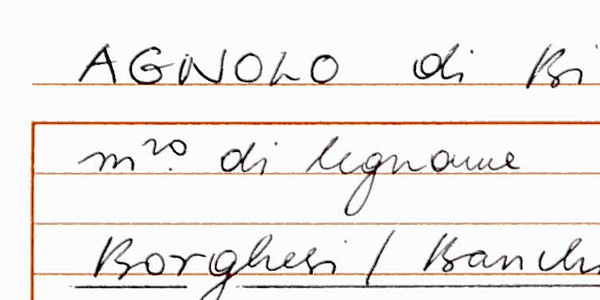 AGNOLO di Bi
m.ro di legname
Borghesi / Banchi